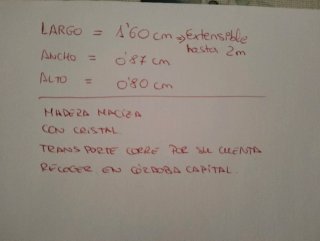 LARGO = 1'60 cm ⇒ Extensible
hasta 2m
ANCHO = 0'87 cm
ALTO = 0'80 cm
MADERA MACIZA
CON CRISTAL.
TRANSPORTE CORRE POR SU CUENTA
RECOGER EN CÓRDOBA CAPITAL.